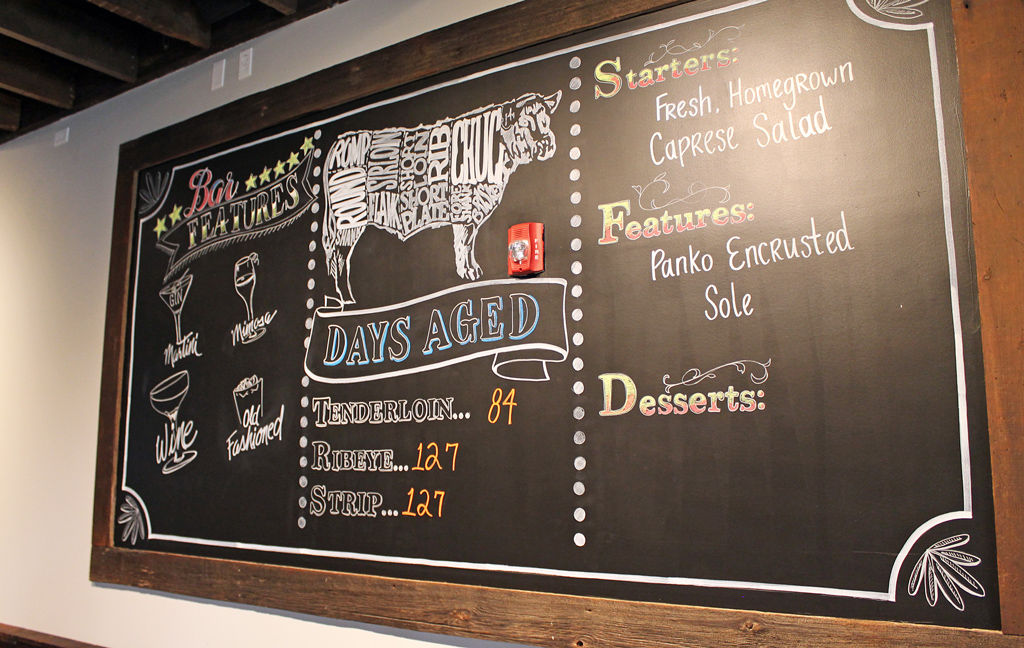 Bar
FEATURES
GIN
Martini
Mimosa
Wine
Old
Fashioned
ROUND
RUMP
SIRLOIN
FLANK
SHORT
LOIN
SHORT
PLATE
RIB
CHUCK
FIRE
DAYS AGED
TENDERLOIN... 84
RIBEYE... 127
STRIP... 127
Starters:
Fresh, Homegrown
Caprese Salad
Features:
Panko Encrusted
Sole
Desserts: